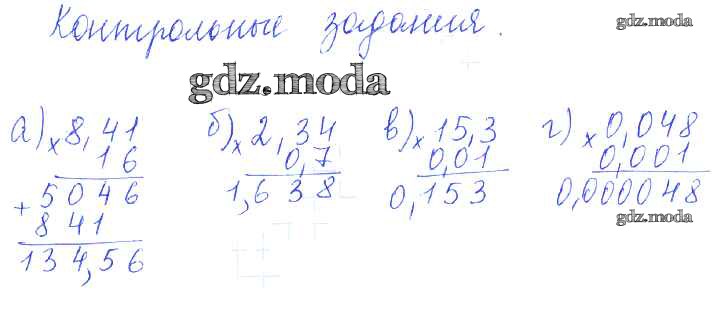 Контрольные задания.
gdz.moda
gdz.moda
а) × 8,41
16
+ 5046
841
134,56
б) × 2,34
0,7
1,638
в) × 15,3
0,01
0,153
г) × 0,048
0,001
0,000048
gdz.moda